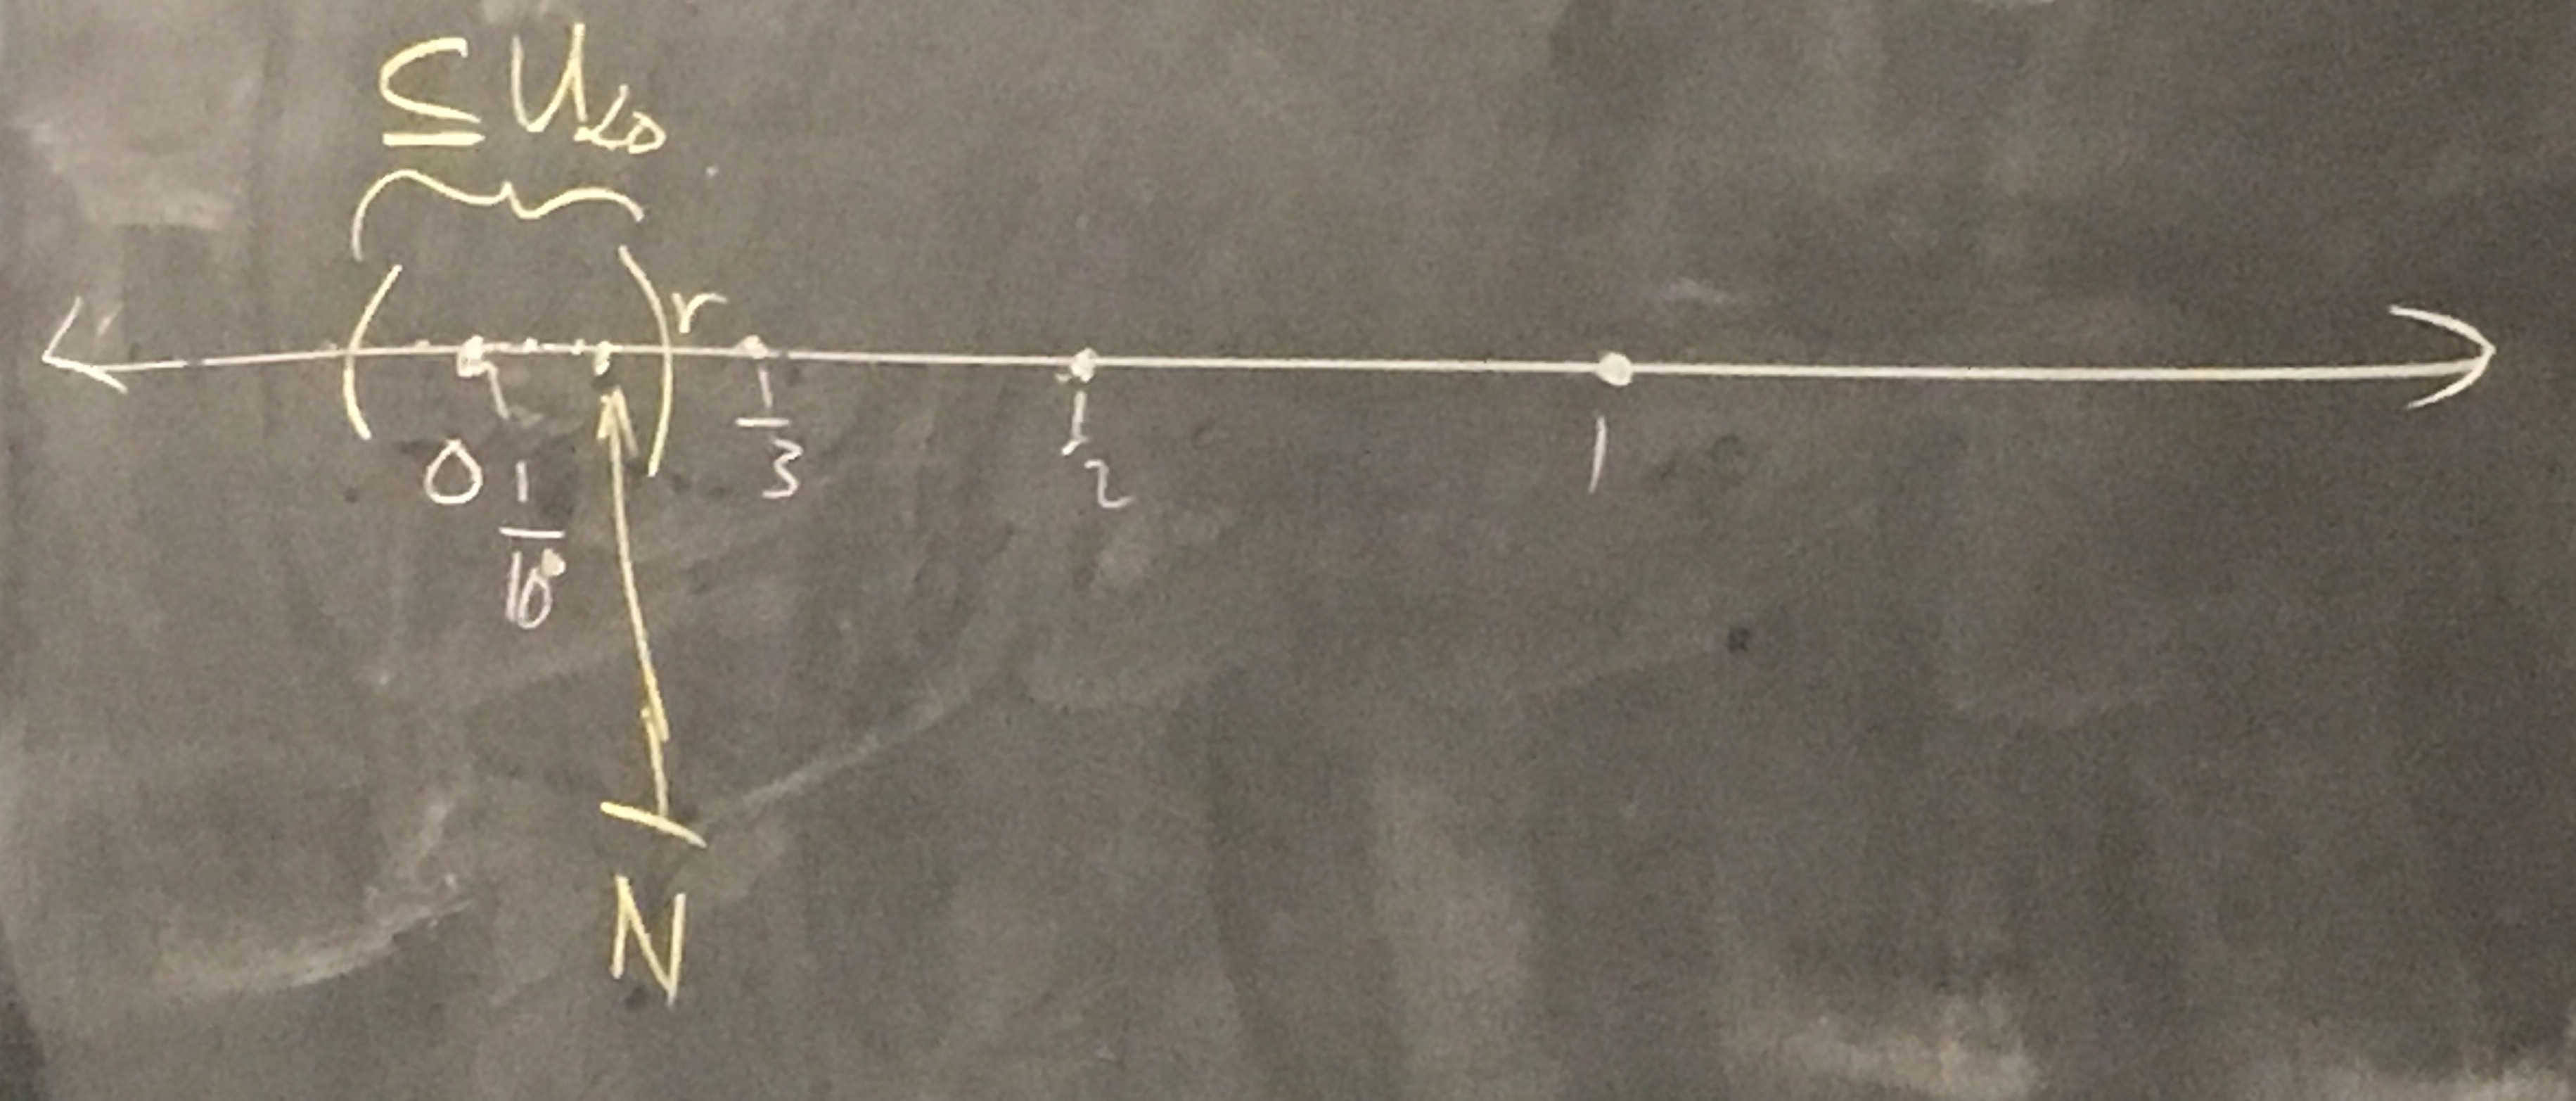 ⊆ U_{α₀}
r
0 1/10 1/3 1/2 1
N